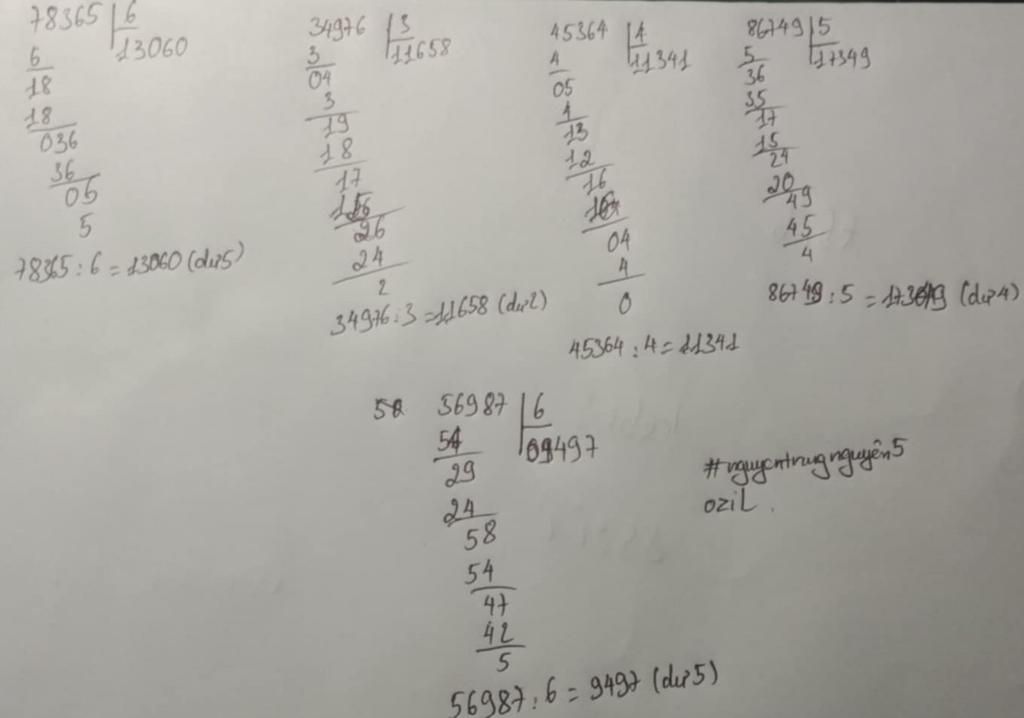 78365 6
13060
6
18
18
036
36
05
5
78365 : 6 = 13060 (dư 5)
34976 3
11658
3
04
3
19
18
17
15
26
24
2
34976 : 3 = 11658 (dư 2)
45364 4
11341
4
05
4
13
12
16
16
04
4
0
45364 : 4 = 11341
86749 5
17349
5
36
35
17
15
24
20
49
45
4
86749 : 5 = 17349 (dư 4)
56987 6
9497
54
29
24
58
54
47
42
5
56987 : 6 = 9497 (dư 5)
#nguyentrungnguyên5
oziL.